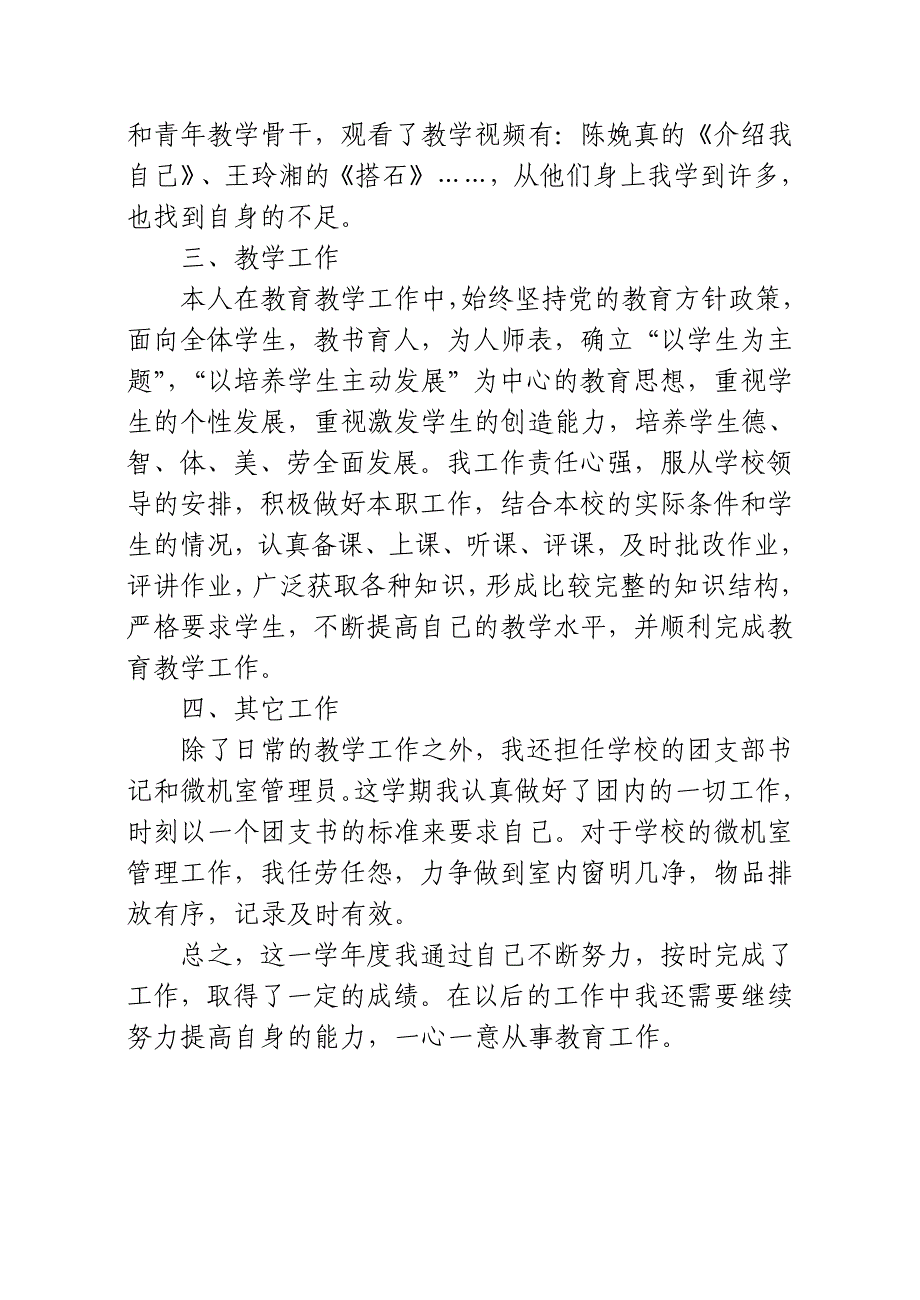 和青年教学骨干，观看了教学视频有：陈娩真的《介绍我
自己》、王玲湘的《搭石》……，从他们身上我学到许多，
也找到自身的不足。
三、教学工作
本人在教育教学工作中，始终坚持党的教育方针政策，
面向全体学生，教书育人，为人师表，确立“以学生为主
题”，“以培养学生主动发展”为中心的教育思想，重视学
生的个性发展，重视激发学生的创造能力，培养学生德、
智、体、美、劳全面发展。我工作责任心强，服从学校领
导的安排，积极做好本职工作，结合本校的实际条件和学
生的情况，认真备课、上课、听课、评课，及时批改作业，
评讲作业，广泛获取各种知识，形成比较完整的知识结构，
严格要求学生，不断提高自己的教学水平，并顺利完成教
育教学工作。
四、其它工作
除了日常的教学工作之外，我还担任学校的团支部书
记和微机室管理员。这学期我认真做好了团内的一切工作，
时刻以一个团支书的标准来要求自己。对于学校的微机室
管理工作，我任劳任怨，力争做到室内窗明几净，物品排
放有序，记录及时有效。
总之，这一学年度我通过自己不断努力，按时完成了
工作，取得了一定的成绩。在以后的工作中我还需要继续
努力提高自身的能力，一心一意从事教育工作。